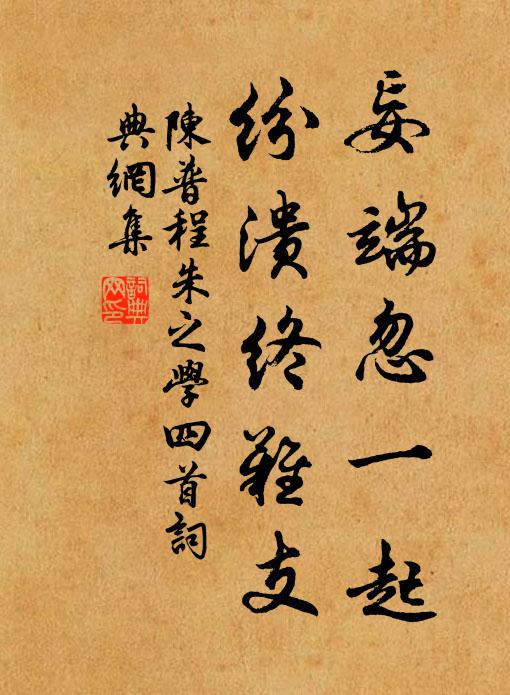 妄端忽一起
紛潰終難支
陳普程朱之學四首詞
典網集
詞典
网印